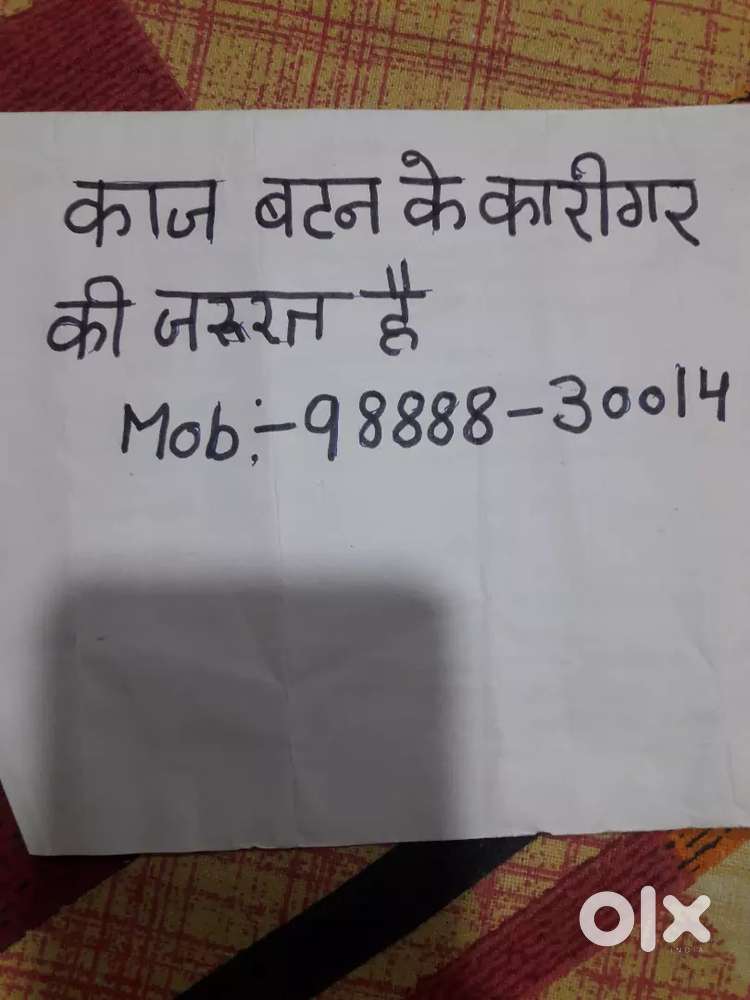 काज बटन के कारीगर
की जरूरत है
Mob:-98888-30014
olx
INDIA